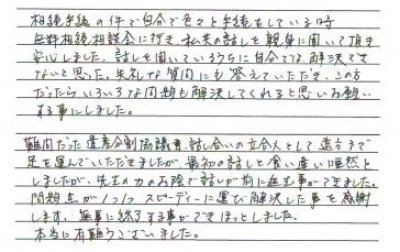 相続手続の件で自分で色々と手続をしている時
無料相続相談会に行き、私共の話しを親身に聞いて頂き
安心しました。話しを聞いているうちに自分では、解決でき
ないと思った。失礼な質問にも答えていただき、この方
だったらいろいろな問題も解決してくれると思いお願い
する事にしました。
難関だった遺産分割協議書、話し合いの立合人として遠方まで
足を運んでいただきましたが、最初の話しと食い違い唖然と
しましたが、先生の力のお陰で話しが前に進む事ができました。
問題点が1つ1つスピーディーに運び解決した事を感謝
します。無事に終了する事ができほっとしました。
本当に有難うございました。